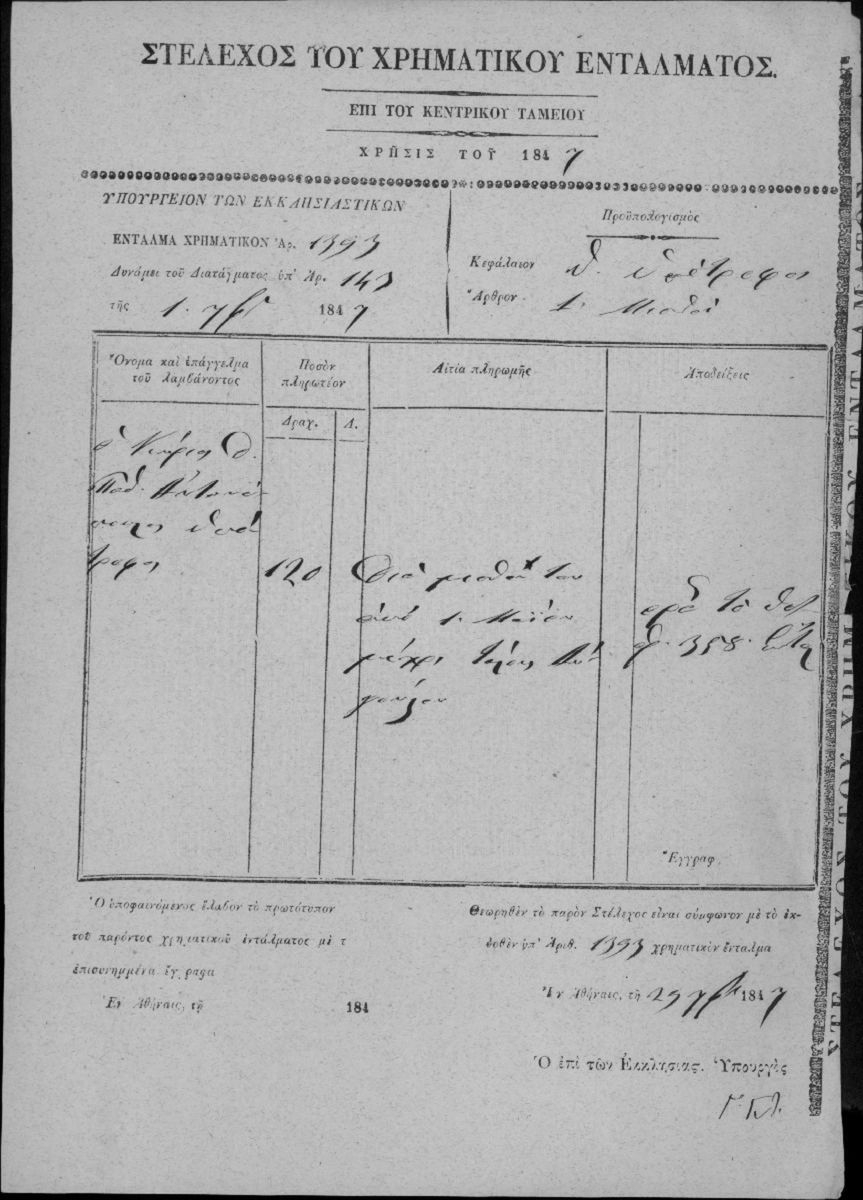 ΣΤΕΛΕΧΟΣ ΤΟΥ ΧΡΗΜΑΤΙΚΟΥ ΕΝΤΑΛΜΑΤΟΣ.
ΕΠΙ ΤΟΥ ΚΕΝΤΡΙΚΟΥ ΤΑΜΕΙΟΥ
ΧΡΗΣΙΣ ΤΟΥ 1847
ΥΠΟΥΡΓΕΙΟΝ ΤΩΝ ΕΚΚΛΗΣΙΑΣΤΙΚΩΝ
ΕΝΤΑΛΜΑ ΧΡΗΜΑΤΙΚΟΝ Ἀρ. 1393
Δυνάμει τοῦ Διατάγματος ὑπ' Ἀρ. 143
τῆς 1. 7βρ 1847
Προϋπολογισμὸς
Κεφάλαιον Θ. ὑπότροφοι
Ἄρθρον 1. Μισθοί
Ὄνομα καὶ ἐπάγγελμα
τοῦ λαμβάνοντος
Ποσὸν
πληρωτέον
Δραχ. Λ.
Αἰτία πληρωμῆς
Ἀποδείξεις
ὁ Κύριος Θ.
Παπ. Ἀντωνό-
πουλος ὑπό
τροφος
120
Διὰ μισθόν του
ἀπὸ 1. Μαΐου
μέχρι τέλους Αὐ
γούστου
358
Ἔγγραφ.
Ὁ ὑποφαινόμενος ἔλαβον τὸ πρωτότυπον
τοῦ παρόντος χρηματικοῦ ἐντάλματος μὲ τ
ἐπισυνημμένα ἔγγραφα
Ἐν Ἀθήναις, τῇ 184
Θεωρηθὲν τὸ παρὸν Στέλεχος εἶναι σύμφωνον μὲ τὸ ἐκ-
δοθὲν ὑπ' Ἀριθ. 1393 χρηματικὸν ἔνταλμα
Ἐν Ἀθήναις, τῇ 29 7βρ 1847
Ὁ ἐπὶ τῶν Ἐκκλησιας. Ὑπουργὸς
ΣΤΕΛΕΧΟΝ ΤΟΥ ΧΡΗΜΑΤΙΚΟΥ ΕΝΤΑΛΜΑΤΟΣ